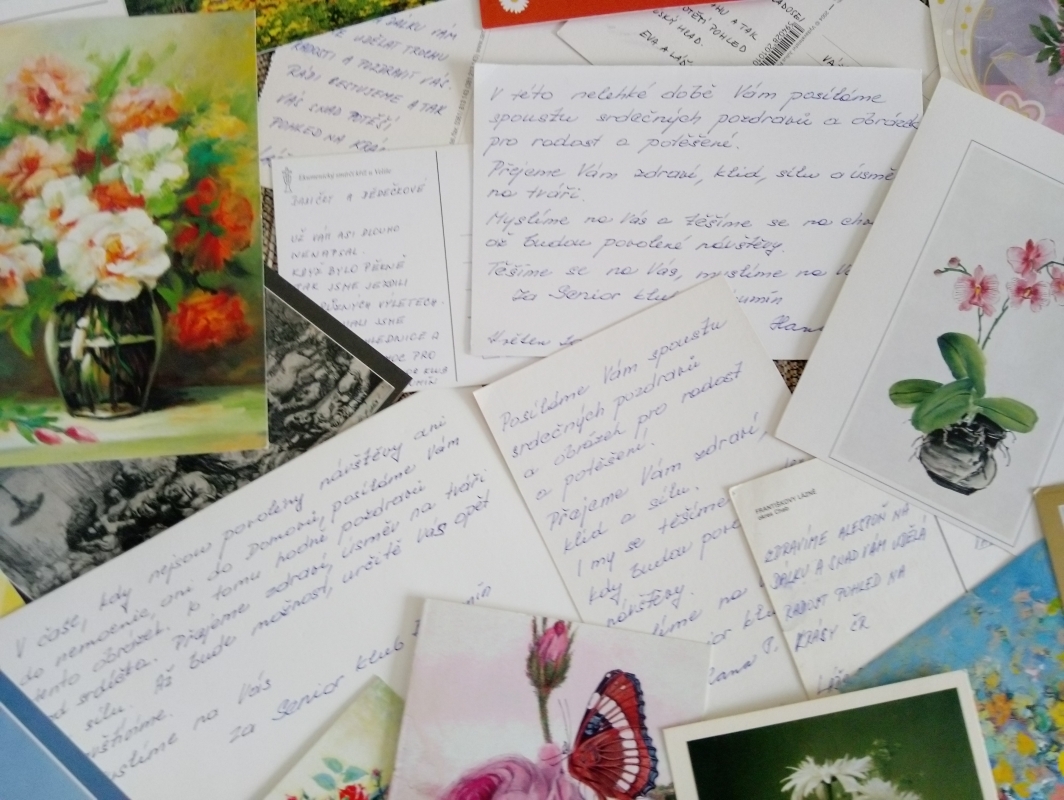 DÁLKU VÁM
UDĚLAT TROCHU
RADOSTI A POZDRAVIT VÁS.
RÁDI CESTUJEME A TAK
VÁS SNAD POTĚŠÍ
POHLED NA
A TAK
POHLED
HRAD.
EVA A
V této nelehké době Vám posíláme
spoustu srdečných pozdravů a obrázek
pro radost a potěšení.
Přejeme Vám zdraví, klid, sílu a úsměv
na tváři.
Myslíme na Vás a těšíme se na
až budou povolené návštěvy.
Těšíme se na Vás, myslíme na
Za Senior
Hana
A DĚDEČKOVÉ
UŽ VÁM ASI DLOUHO
NENAPSAL.
KDYŽ BYLO PĚKNĚ
TAK JSME JEZDILI
VÝLETECH.
JSME
A
PRO
Posíláme Vám spoustu
srdečných pozdravů
a obrázek pro radost
a potěšení!
Přejeme Vám zdraví,
klid a sílu.
I my se těšíme
kdy budou
návštěvy.
na
Hana P.
V čase, kdy nejsou povoleny návštěvy ani
do nemocnic, ani do Domovů, posíláme Vám
tento obrázek. K tomu hodně pozdravů
od srdíčka. Přejeme zdraví, úsměv na tváři
sílu. Až bude možnost, určitě Vás opět
na Vás
za Senior klub
FRANTIŠKOVY LÁZNĚ
okres Cheb
ZDRAVÍME ALESPOŇ NA
DÁLKU A SNAD VÁM UDĚLÁ
RADOST POHLED NA
KRÁSY ČR